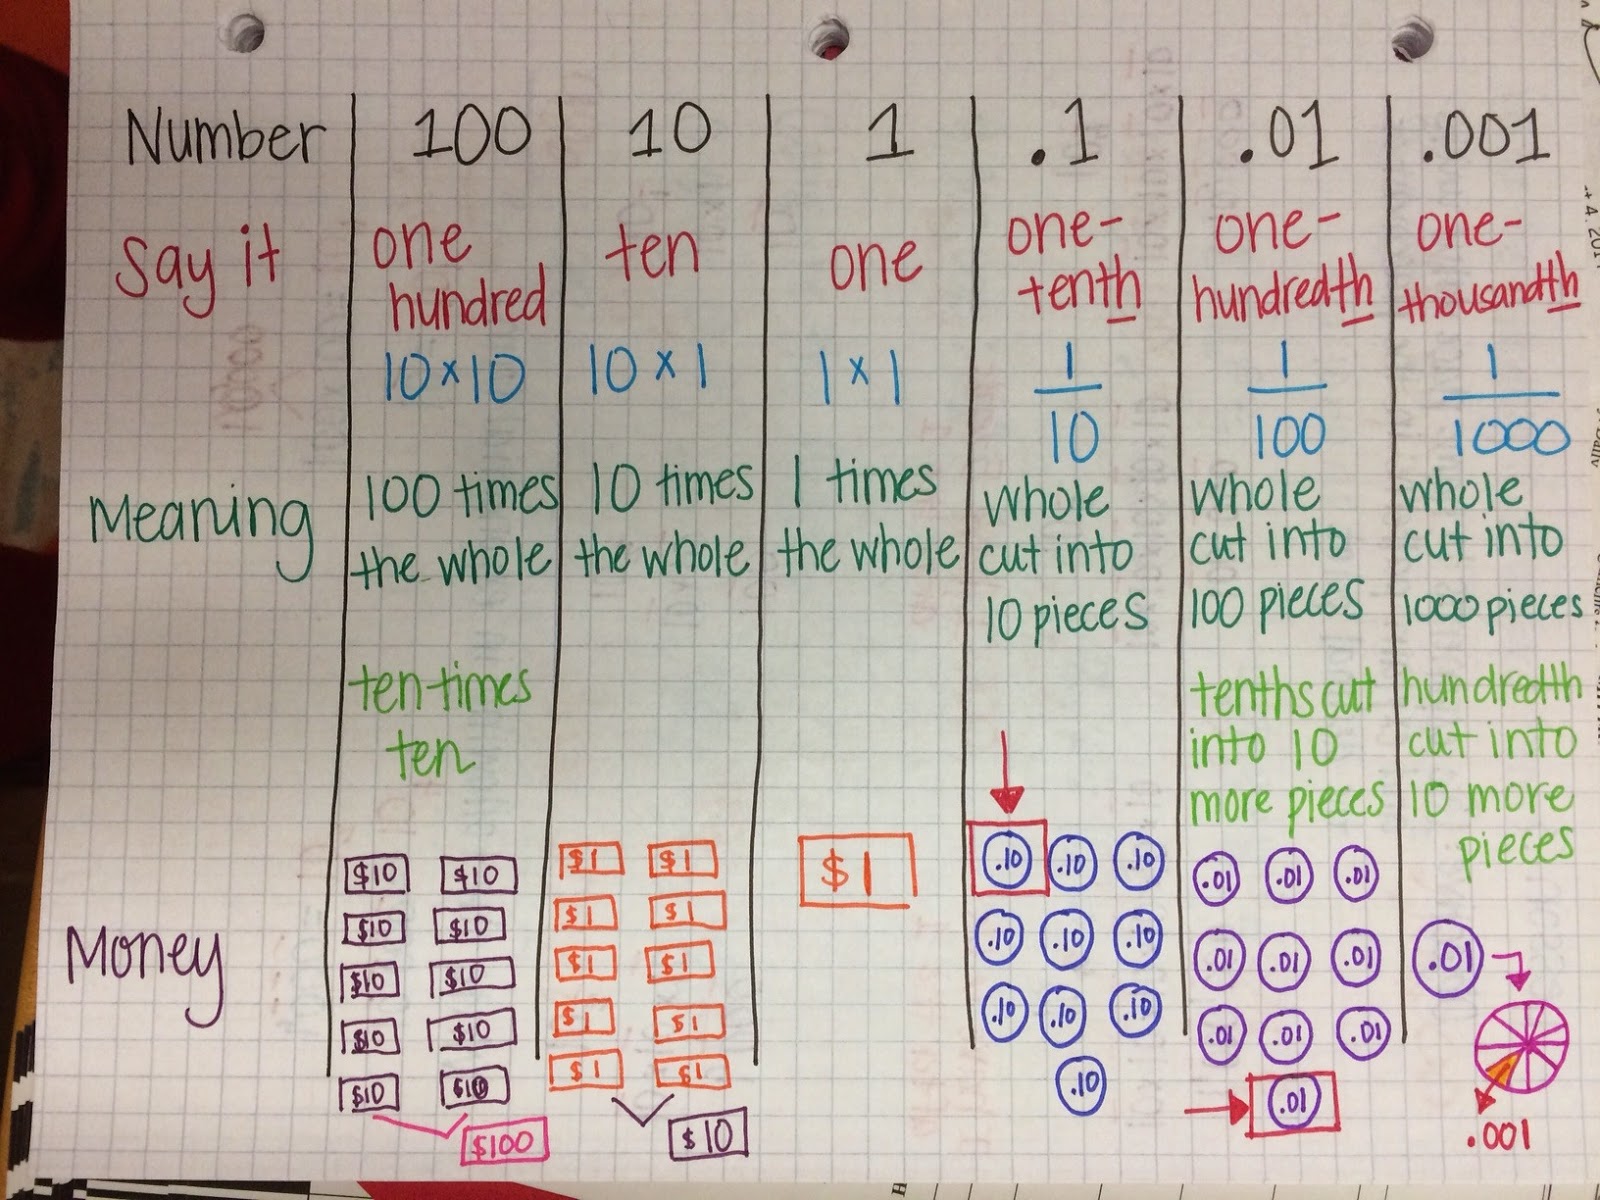 Number 100 10 1 .1 .01 .001
Say it one hundred ten one one-tenth one-hundredth one-thousandth
10 x 10 10 x 1 1 x 1 1/10 1/100 1/1000
Meaning
100 times
the whole
10 times
the whole
1 times
the whole
whole
cut into
10 pieces
whole
cut into
100 pieces
whole
cut into
1000 pieces
ten times
ten
tenths cut
into 10
more pieces
hundredth
cut into
10 more
pieces
Money
$10 $10
$10 $10
$10 $10
$10 $10
$10 $10
$100
$1 $1
$1 $1
$1 $1
$1 $1
$1 $1
$10
$1
.10 .10 .10
.10 .10 .10
.10 .10 .10
.10
.01 .01 .01
.01 .01 .01
.01 .01 .01
.01
.01
.001